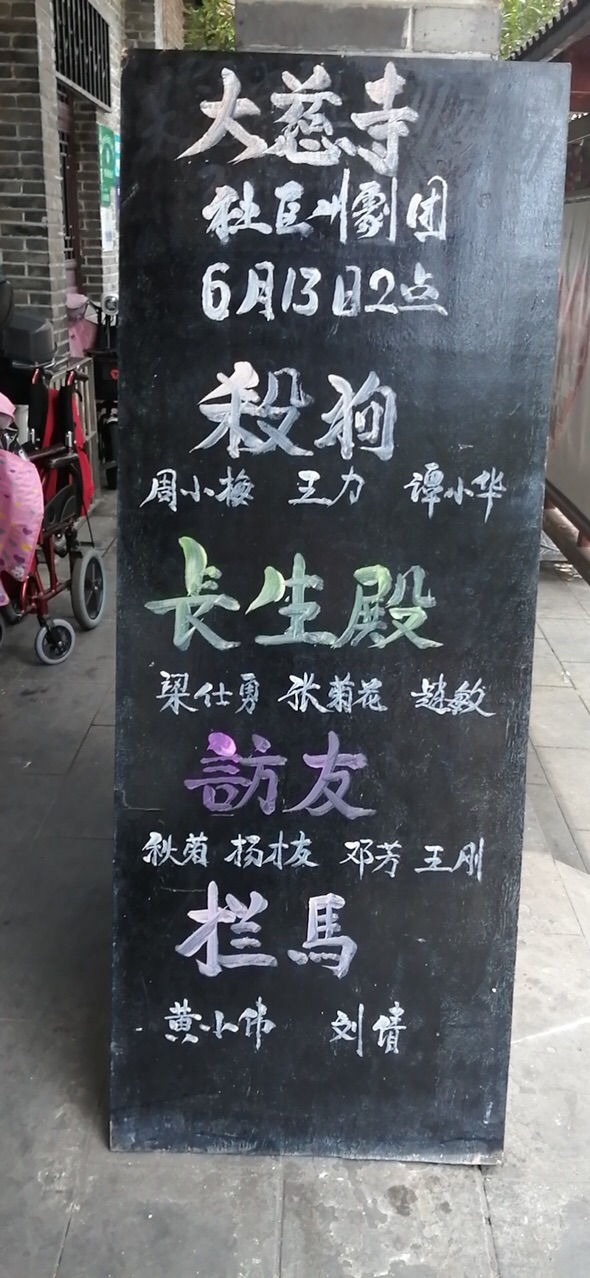 大慈寺
社区川劇团
6月13日2点
殺狗
周小梅 王力 谭小华
長生殿
梁仕勇 张菊花 赵敏
訪友
秋菊 杨才友 邓芳 王刚
拦馬
黄小伟 刘倩